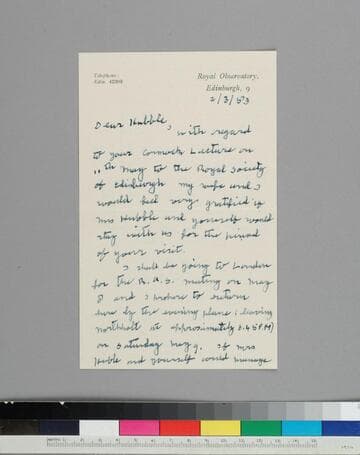 Telephone:
Edin. 42308
Royal Observatory,
Edinburgh, 9
2/3/53
Dear Hubble,
with regard
to your Cormack Lecture on
11th May to the Royal Society
of Edinburgh my wife and I
would feel very gratified if
Mrs Hubble and yourself would
stay with us for the period
of your visit.
I shall be going to London
for the R.A.S. meeting on May
8 and I propose to return
here by the evening plane (leaving
Northholt at approximately 8.45 P.M)
on Saturday May 9. If Mrs
Hubble and yourself could manage